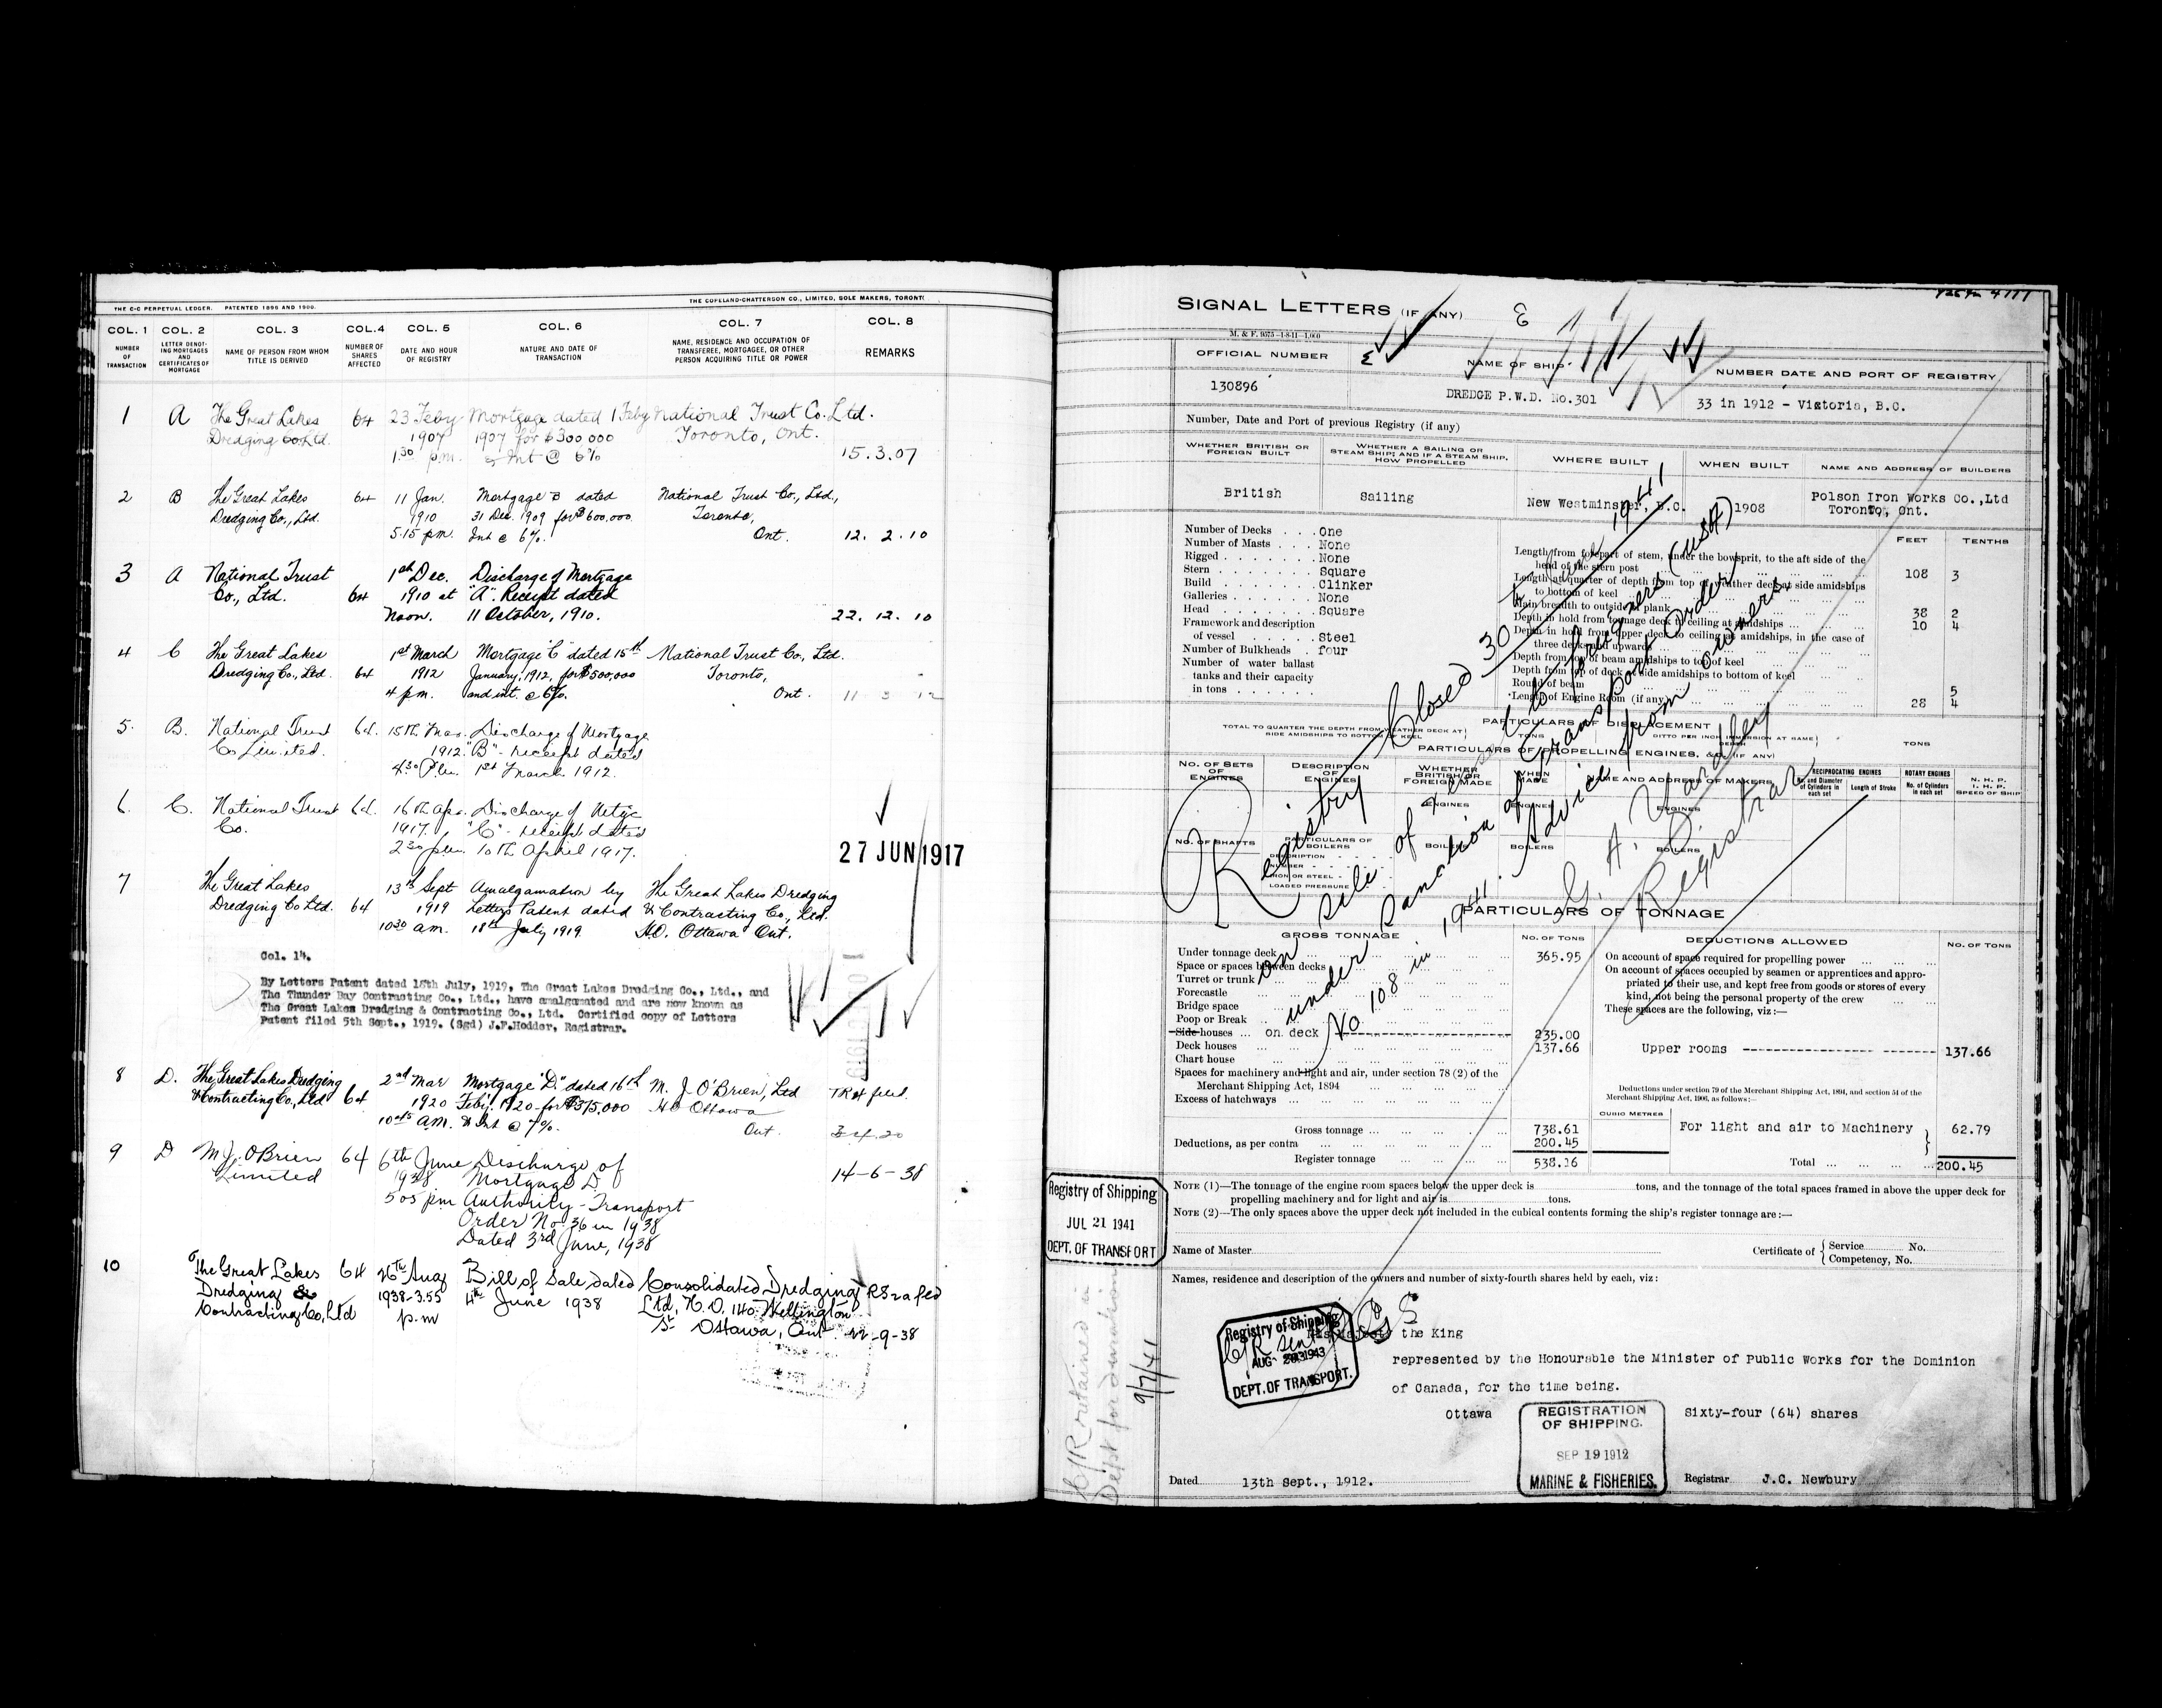 THE C-C PERPETUAL LEDGER. PATENTED 1896 AND 1900.
THE COPELAND-CHATTERSON CO., LIMITED, SOLE MAKERS, TORONTO
COL. 1 COL. 2 COL. 3 COL.4 COL. 5 COL. 6 COL. 7 COL. 8
NUMBER OF TRANSACTION
LETTER DENOTING MORTGAGES AND CERTIFICATES OF MORTGAGE
NAME OF PERSON FROM WHOM TITLE IS DERIVED
NUMBER OF SHARES AFFECTED
DATE AND HOUR OF REGISTRY
NATURE AND DATE OF TRANSACTION
NAME, RESIDENCE AND OCCUPATION OF TRANSFEREE, MORTGAGEE, OR OTHER PERSON ACQUIRING TITLE OR POWER
REMARKS
1 A The Great Lakes 64 23 Feby Mortgage dated 1 Feby National Trust Co. Ltd.
Dredging Co Ltd. 1907 1907 for $300,000 Toronto, Ont.
1.30 p.m. & Int @ 6% 15.3.07
2 B The Great Lakes 64 11 Jan. Mortgage B dated National Trust Co., Ltd.,
Dredging Co., Ltd. 1910 31 Dec. 1909 for $600,000. Toronto,
5.15 pm. Int @ 6%. Ont. 12. 2. 10
3 A National Trust 1st Dec. Discharge of Mortgage
Co., Ltd. 64 1910 at "A". Receipt dated
Noon. 11 October, 1910. 22. 12. 10
4 C The Great Lakes 1st March Mortgage "C" dated 15th National Trust Co., Ltd.
Dredging Co., Ltd. 64 1912 January, 1912, for $500,000 Toronto,
4 pm. and int. @ 6%. Ont. 11 3 12
5. B. National Trust 64. 15th Mar. Discharge of Mortgage
Co Limited. 1912. "B" - receipt dated
4.30 P.m. 1st March 1912.
6. C. National Trust 64. 16th Apr. Discharge of Mtge
Co. 1917. "C" - receipt dated
2.30 p.m. 10th April 1917.
27 JUN 1917
7 The Great Lakes 13th Sept Amalgamation by The Great Lakes Dredging
Dredging Co Ltd. 64 1919 Letters Patent dated & Contracting Co., Ltd.
10.30 am. 18th July 1919. H.O. Ottawa Ont.
Col. 14.
By Letters Patent dated 18th July, 1919, The Great Lakes Dredging Co., Ltd., and
The Thunder Bay Contracting Co., Ltd., have amalgamated and are now known as
The Great Lakes Dredging & Contracting Co., Ltd. Certified copy of Letters
Patent filed 5th Sept., 1919. (Sgd) J.F.Hodder, Registrar.
8 D. The Great Lakes Dredging 2nd Mar Mortgage "D." dated 16th M. J. O'Brien, Ltd
& Contracting Co., Ltd 64 1920 Feby. 1920 for $375,000 HO Ottawa
10.45 a.m. & Int @ 7%. Ont.
9 D M.J. O'Brien 64 6th June Discharge of
Limited 1938 Mortgage D. 14-6-38
5 05 pm Authority - Transport
Order No 36 in 1938
Dated 3rd June, 1938
10 The Great Lakes 64 26th Aug Bill of Sale dated Consolidated Dredging
Dredging & 1938-3.55 4th June 1938 Ltd, H.O. 140 Wellington
Contracting Co, Ltd p.m St Ottawa, Ont 22-9-38
SIGNAL LETTERS (IF ANY)
M. & F. 9575-1-8-11-1,000
OFFICIAL NUMBER
NAME OF SHIP
NUMBER DATE AND PORT OF REGISTRY
130896
DREDGE P.W.D. No.301
33 in 1912 - Victoria, B.C.
Number, Date and Port of previous Registry (if any)
WHETHER BRITISH OR FOREIGN BUILT
WHETHER A SAILING OR STEAM SHIP; AND IF A STEAM SHIP, HOW PROPELLED
WHERE BUILT
WHEN BUILT
NAME AND ADDRESS OF BUILDERS
British
Sailing
New Westminster, B.C.
1908
Polson Iron Works Co.,Ltd
Toronto, Ont.
FEET TENTHS
Number of Decks . . . One
Number of Masts . . . None
Rigged . . . . . . . None
Stern . . . . . . . Square
Build . . . . . . . Clinker
Galleries . . . . . . None
Head . . . . . . . Square
Framework and description
of vessel . . . . . Steel
Number of Bulkheads . four
Number of water ballast
tanks and their capacity
in tons . . . . . . .
Length from fore part of stem, under the bowsprit, to the aft side of the
head of the stern post 108 3
Length at quarter of depth from top of weather deck at side amidships
to bottom of keel
Main breadth to outside of plank 38 2
Depth in hold from tonnage deck to ceiling at amidships 10 4
Depth in hold from upper deck to ceiling at amidships, in the case of
three decks and upwards
Depth from top of beam amidships to top of keel
Depth from top of deck at side amidships to bottom of keel
Round of beam 5
Length of Engine Room (if any) 28 4
PARTICULARS OF DISPLACEMENT
TOTAL TO QUARTER THE DEPTH FROM WEATHER DECK AT SIDE AMIDSHIPS TO BOTTOM OF KEEL
TONS
DITTO PER INCH IMMERSION AT SAME DEPTH
TONS
PARTICULARS OF PROPELLING ENGINES, &c. (IF ANY)
NO. OF SETS OF ENGINES
DESCRIPTION OF ENGINES
WHETHER BRITISH OR FOREIGN MADE
WHEN MADE
NAME AND ADDRESS OF MAKERS
RECIPROCATING ENGINES
No. and Diameter of Cylinders in each set
Length of Stroke
ROTARY ENGINES
No. of Cylinders in each set
N. H. P.
I. H. P.
SPEED OF SHIP
ENGINES ENGINES ENGINES
NO. OF SHAFTS
PARTICULARS OF BOILERS
DESCRIPTION
NUMBER
IRON OR STEEL
LOADED PRESSURE
BOILERS BOILERS BOILERS
Registry Closed 30th June 1941
on sale of vessel to foreigners (USA)
under sanction of Transport Order
No 108 in 1941. Advice from owners.
G. A. Yardley
Registrar
PARTICULARS OF TONNAGE
GROSS TONNAGE
NO. OF TONS
DEDUCTIONS ALLOWED
NO. OF TONS
Under tonnage deck 365.95
Space or spaces between decks
Turret or trunk
Forecastle
Bridge space
Poop or Break
Side houses ... on deck 235.00
Deck houses 137.66
Chart house
Spaces for machinery and light and air, under section 78 (2) of the
Merchant Shipping Act, 1894
Excess of hatchways
Gross tonnage 738.61
Deductions, as per contra 200.45
Register tonnage 538.16
On account of space required for propelling power
On account of spaces occupied by seamen or apprentices and appro-
priated to their use, and kept free from goods or stores of every
kind, not being the personal property of the crew
These spaces are the following, viz:—
Upper rooms 137.66
Deductions under section 79 of the Merchant Shipping Act, 1894, and section 54 of the
Merchant Shipping Act, 1906, as follows:—
CUBIC METRES
For light and air to Machinery 62.79
Total 200.45
NOTE (1)—The tonnage of the engine room spaces below the upper deck is tons, and the tonnage of the total spaces framed in above the upper deck for
propelling machinery and for light and air is tons.
NOTE (2)—The only spaces above the upper deck not included in the cubical contents forming the ship's register tonnage are:—
Registry of Shipping
JUL 21 1941
DEPT. OF TRANSPORT
Name of Master
Certificate of { Service No.
Competency, No.
Names, residence and description of the owners and number of sixty-fourth shares held by each, viz:
Registry of Shipping
C/R sent
AUG 1943
DEPT. OF TRANSPORT.
His Majesty the King
represented by the Honourable the Minister of Public Works for the Dominion
of Canada, for the time being.
Ottawa
Sixty-four (64) shares
REGISTRATION
OF SHIPPING.
SEP 19 1912
MARINE & FISHERIES.
Dated 13th Sept., 1912.
Registrar J.C. Newbury
C/R retained in
Dept for
9/7/41